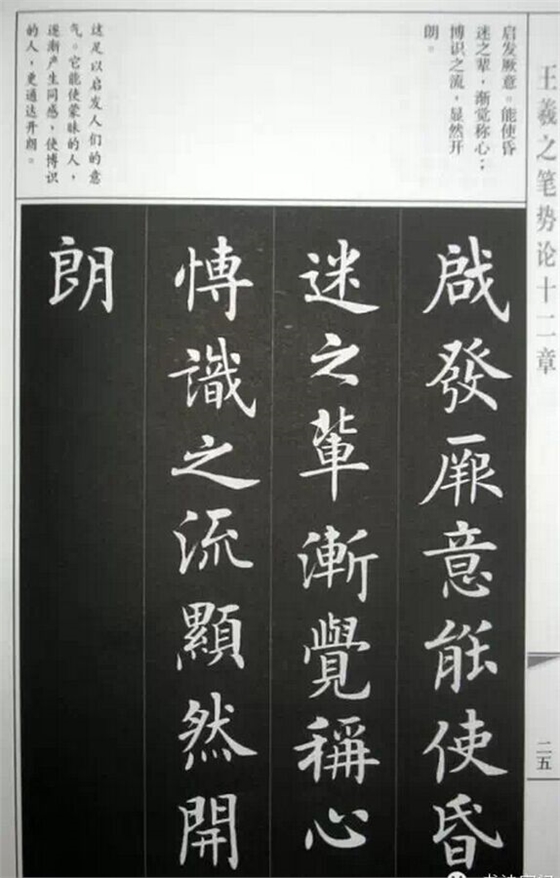 王羲之笔势论十二章
二五
启发厥意。能使昏
迷之辈，渐觉称心；
博识之流，显然开
朗。
这足以启发人们的意
气。它能使蒙昧的人，
逐渐产生同感，使博识
的人，更通达开朗。
啟發厥意能使昏
迷之輩漸覺稱心
博識之流顯然開
朗